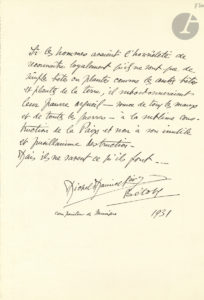 Si les hommes avaient l'honnêteté de
reconnaître loyalement qu'ils ne sont que de
simples bêtes ou plantes comme les autres bêtes
et plantes de la terre, il subordonneraient
leur pauvre orgueil — venu de tous les
et de toutes les — à la sublime cons-
truction de la Paix et non à son inutile
et pusillanime destruction.
Mais ils ne savent ce qu'ils font ....
Michel
compositeur de Musique 1931